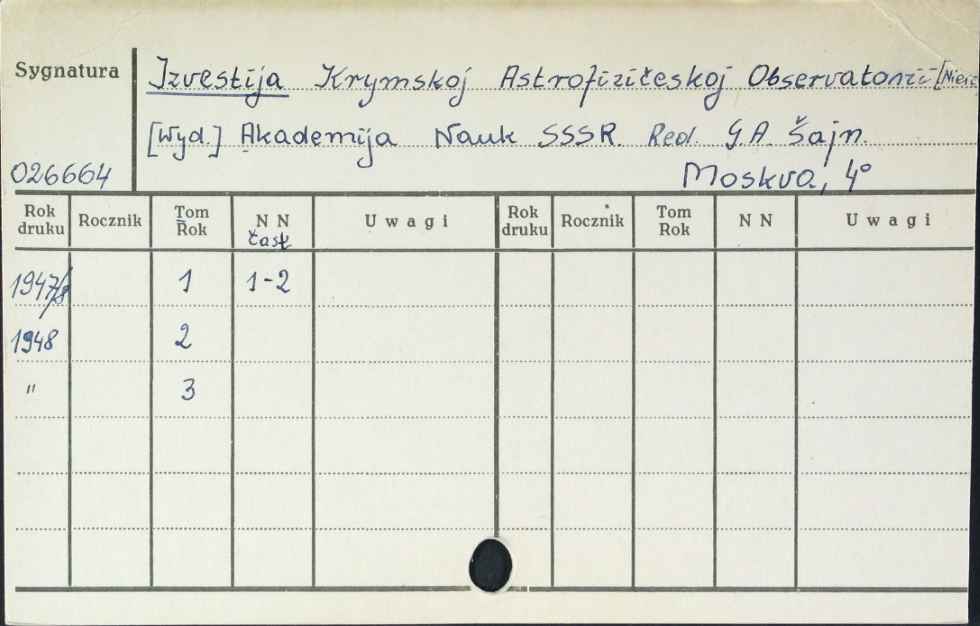 Sygnatura
Izvestija Krymskoj Astrofizičeskoj Observatorii
[Wyd.] Akademija Nauk SSSR. Red. G.A. Šajn.
026664 Moskva, 4°
Rok druku Rocznik Tom Rok N N časť Uwagi Rok druku Rocznik Tom Rok N N Uwagi
1947/8 1 1-2
1948 2
" 3